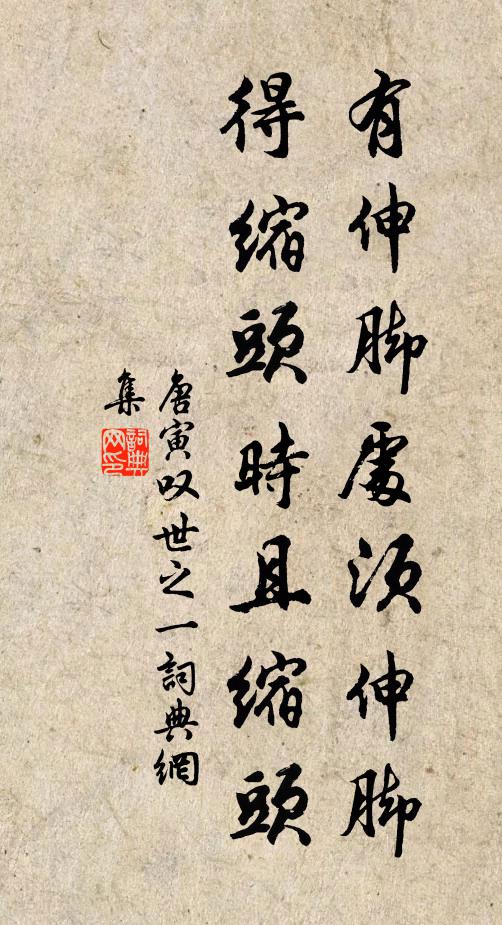 有伸脚處須伸脚
得縮頭時且縮頭
唐寅叹世之一詞典網
集
詞典
网印